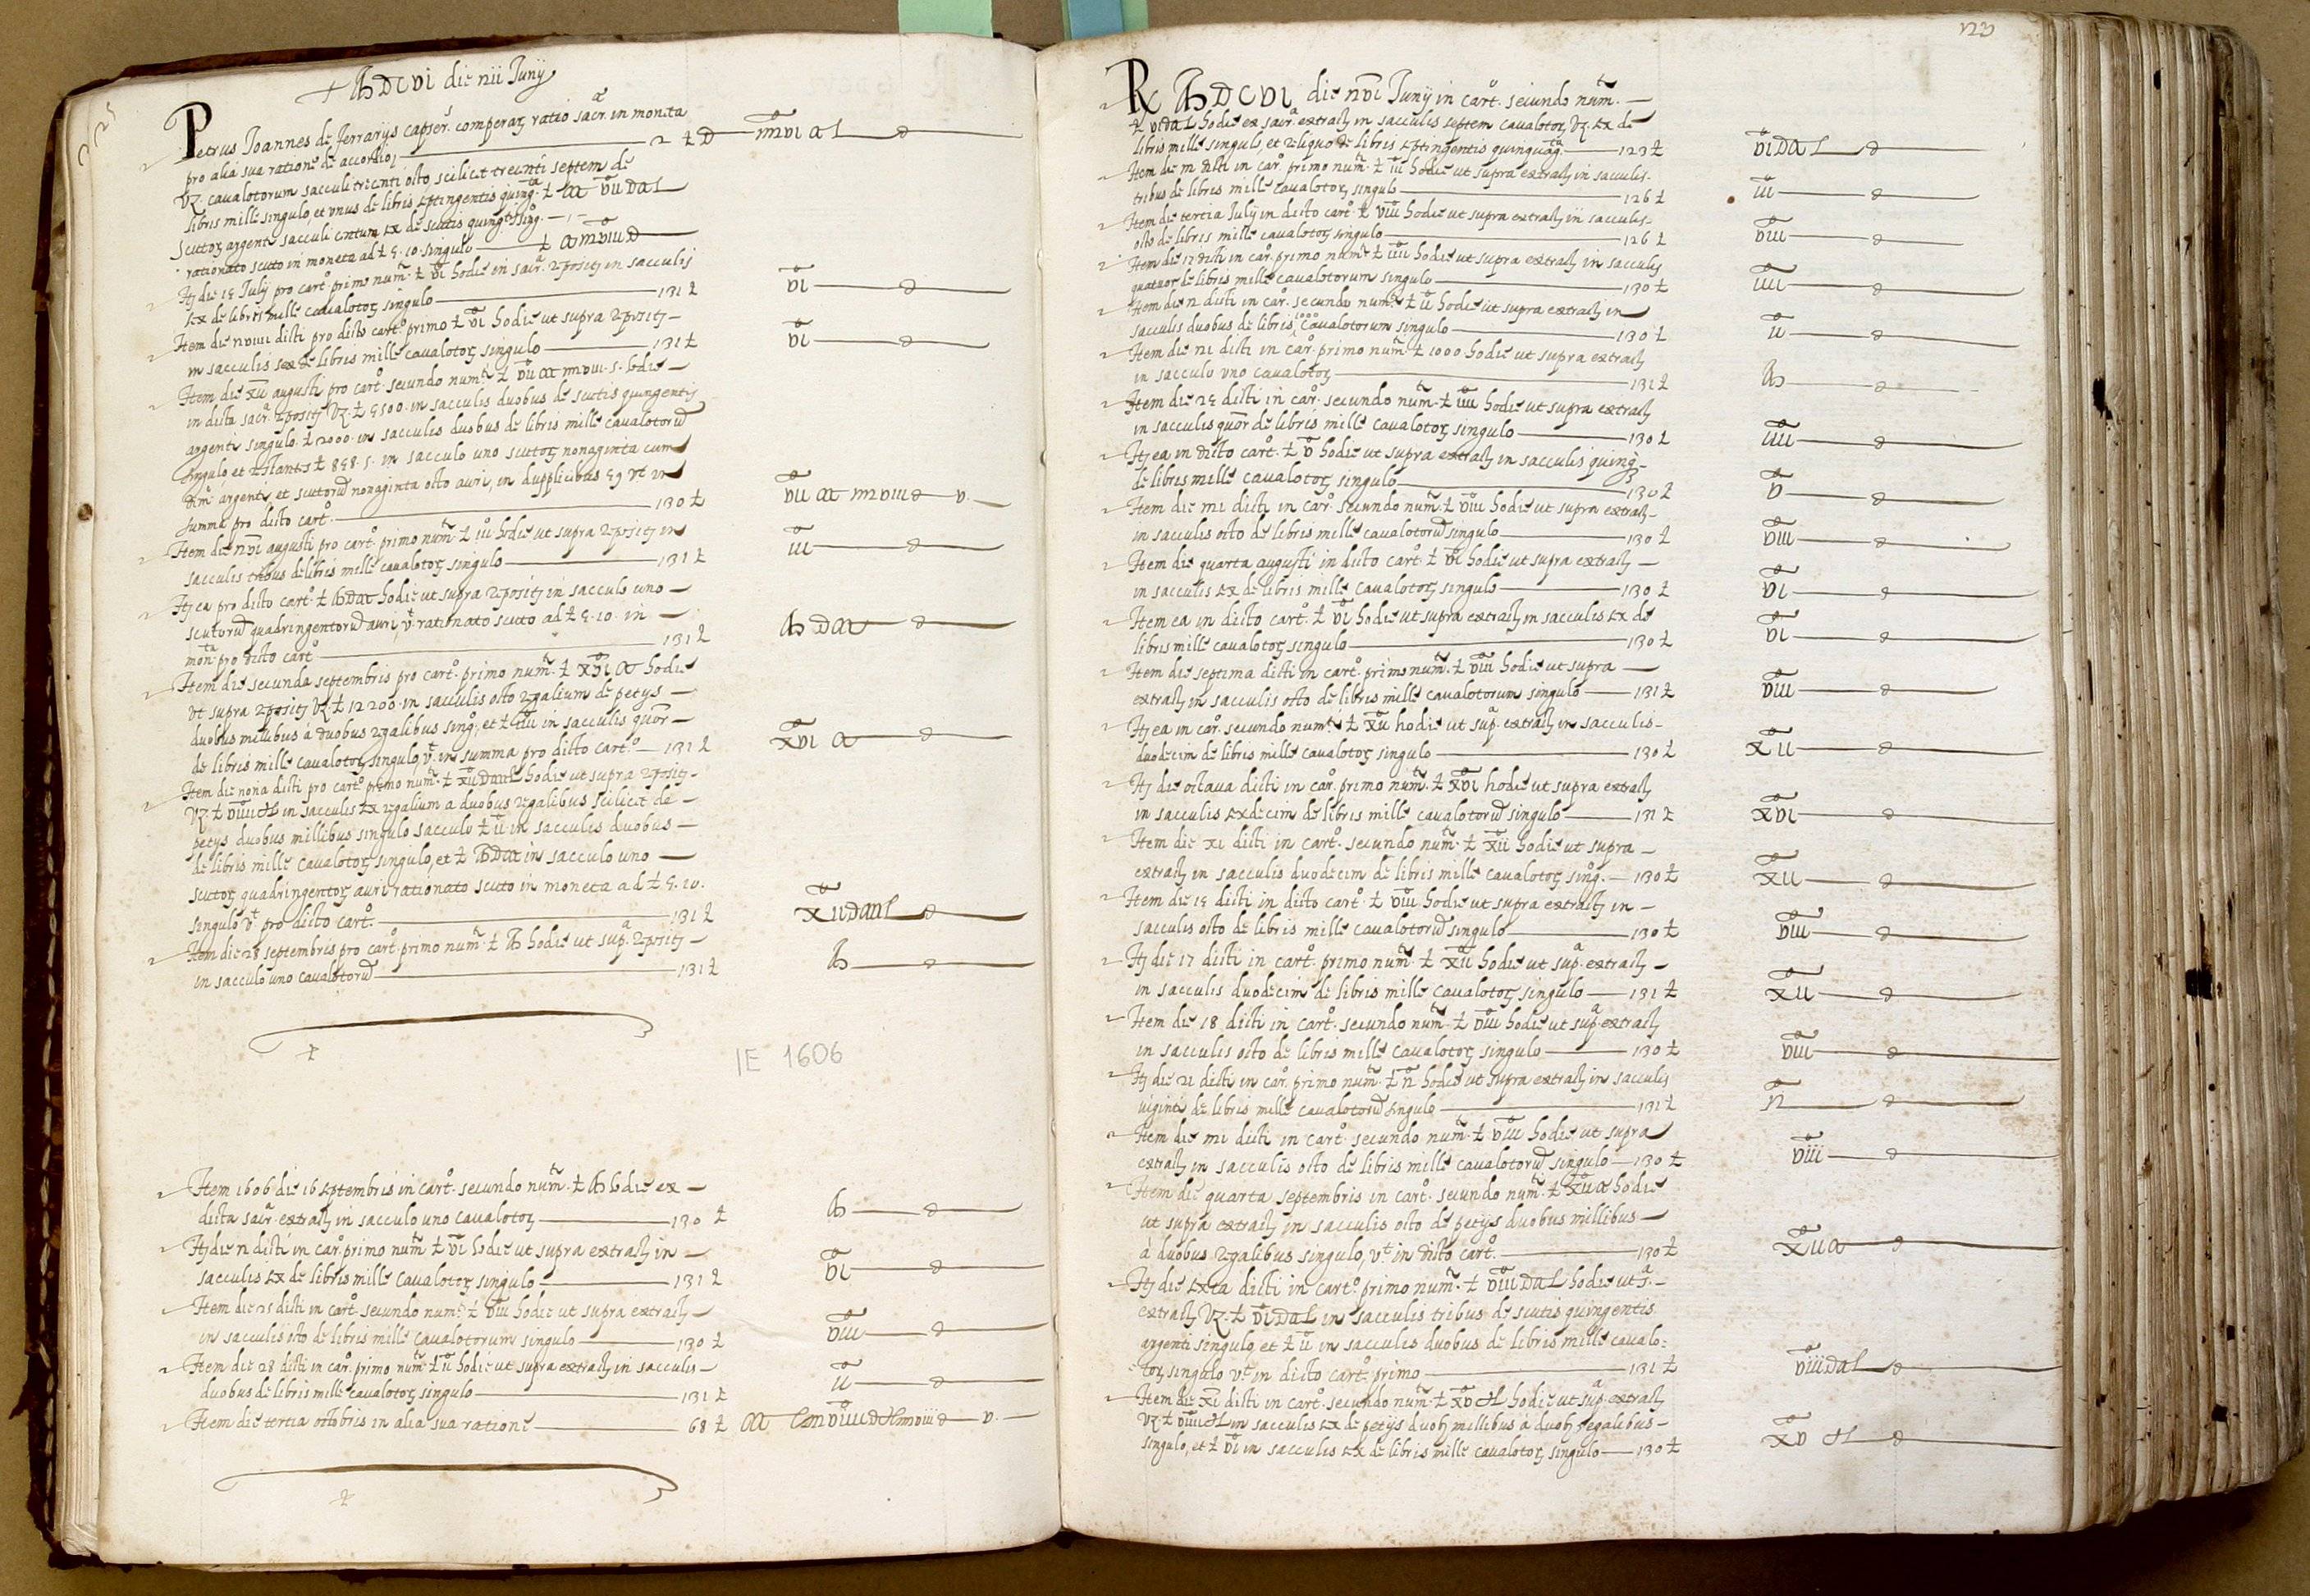 + MDCVI die XXII Juny
Petrus Joannes de Ferrarys capser. comperar. ratio sacr. in monita
pro alia sua ratione de accordio
vz. cavalotorum sacculi trecenti octo, scilicet trecenti septem de
libris mille singulo, et unus de libris septingentis
Scutor. argenti sacculi centum sex de scutis quing.tis sing.o
rationato scuto in moneta ad £ 5.10. singulo
It. die 15 July pro cart.o primo num.ti £ vi hodie in sacr.a repositis in sacculis
sex de libris mille cavalotor. singulo 131 £ vi
Item die xviiii dicti pro dicto cart.o primo £ vi hodie ut supra repositis
in sacculis sex de libris mille cavalotor. singulo 131 £ vi
Item die xii augusti pro cart.o secundo num.ti hodie
in dicta sacr.a repositis vz. £ 5500. in sacculis duobus de scutis quingentis
argenti singulo. £ 2000. in sacculis duobus de libris mille cavalotorum
singulo, et restantes £ 858.5. in sacculo uno scutor. nonaginta cum
argenti, et scutorum nonaginta octo auri, in dupplicibus 59 ut in
summa pro dicto cart.o 130 £
Item die xxvi augusti pro cart.o primo num.ti £ iii hodie ut supra repositis in
sacculis tribus de libris mille cavalotor. singulo 131 £ iii
It. ea pro dicto cart.o hodie ut supra repositis in sacculo uno
scutorum quadringentorum auri, v.t rationato scuto ad £ 5.10. in
mon.ta pro dicto cart.o 131 £
Item die secunda septembris pro cart.o primo num.ti hodie
ut supra repositis vz. £ 12200. in sacculis octo regalium de petys
duobus millibus à duobus regalibus sing.o, et £ iiii in sacculis quor.
de libris mille cavalotor. singulo, v.t in summa pro dicto cart.o 131 £
Item die nona dicti pro cart.o primo num.ti hodie ut supra repositis
in sacculis sex regalium a duobus regalibus scilicet de
petys duobus millibus singulo sacculo £ ii in sacculis duobus
de libris mille cavalotor. singulo, et in sacculo uno
scutor. quadringentor. auri rationato scuto in moneta ad £ 5.10.
singulo v.t pro dicto cart.o 131 £
Item die 28 septembris pro cart.o primo num.ti £ M hodie ut sup.a repositis
in sacculo uno cavalotorum 131 £ M
IE 1606
Item 1606 die 16 septembris in cart.o secundo num.ti £ M hodie ex
dicta sacr.a extractis in sacculo uno cavalotor. 130 £ M
It. die xx dicti in car.o primo num.ti £ vi hodie ut supra extractis in
sacculis sex de libris mille cavalotor. singulo 131 £ vi
Item die 25 dicti in cart.o secundo num.ti £ viii hodie ut supra extractis
in sacculis octo de libris mille cavalotorum singulo 130 £ viii
Item die 28 dicti in car.o primo num.ti £ ii hodie ut supra extractis in sacculis
duobus de libris mille cavalotor. singulo 131 £ ii
Item die tertia octobris in alia sua ratione 68 £
123
R MDCVI die xxvi Juny in cart.o secundo num.ti
hodie ex sacr.a extractis in sacculis septem cavalotor. vz. sex de
libris mille singulo, et reliquo de libris septingentis quinquag.ta 123 £
Item die xxx dicti in car.o primo num.ti £ iii hodie ut supra extractis in sacculis
tribus de libris mille cavalotor. singulo 126 £ iii
Item die tertia July in dicto cart.o £ viii hodie ut supra extractis in sacculis
octo de libris mille cavalotor. singulo 126 £ viii
Item die 17 dicti in car.o primo num.ti £ iiii hodie ut supra extractis in sacculis
quatuor de libris mille cavalotorum singulo 130 £ iiii
Item die xx dicti in car.o secundo num.ti £ ii hodie ut supra extractis in
sacculis duobus de libris 1000 cavalotorum singulo 130 £ ii
Item die xxi dicti in car.o primo num.ti £ 1000 hodie ut supra extractis
in sacculo uno cavalotor. 131 £ M
Item die 25 dicti in car.o secundo num.ti £ iiii hodie ut supra extractis
in sacculis quor. de libris mille cavalotor. singulo 130 £ iiii
It. ea in dicto cart.o £ v hodie ut supra extractis in sacculis quinq.
de libris mille cavalotor. singulo 130 £ v
Item die xxxi dicti in car.o secundo num.ti £ viii hodie ut supra extractis
in sacculis octo de libris mille cavalotorum singulo 130 £ viii
Item die quarta augusti in dicto cart.o £ vi hodie ut supra extractis
in sacculis sex de libris mille cavalotor. singulo 130 £ vi
Item ea in dicto cart.o £ vi hodie ut supra extractis in sacculis sex de
libris mille cavalotor. singulo 130 £ vi
Item die septima dicti in cart.o primo num.ti £ viii hodie ut supra
extractis in sacculis octo de libris mille cavalotorum singulo 131 £ viii
It. ea in car.o secundo num.ti £ xii hodie ut sup.a extractis in sacculis
duodecim de libris mille cavalotor. singulo 130 £ xii
It. die octava dicti in car.o primo num.ti £ xvi hodie ut supra extractis
in sacculis sexdecim de libris mille cavalotorum singulo 131 £ xvi
Item die xi dicti in cart.o secundo num.ti £ xii hodie ut supra
extractis in sacculis duodecim de libris mille cavalotor. sing.o 130 £ xii
Item die 15 dicti in dicto cart.o £ viii hodie ut supra extractis in
sacculis octo de libris mille cavalotorum singulo 130 £ viii
It. die 17 dicti in cart.o primo num.ti £ xii hodie ut sup.a extractis
in sacculis duodecim de libris mille cavalotor. singulo 131 £ xii
Item die 18 dicti in cart.o secundo num.ti £ viii hodie ut sup.a extractis
in sacculis octo de libris mille cavalotor. singulo 130 £ viii
It. die 21 dicti in car.o primo num.ti £ xx hodie ut supra extractis in sacculis
viginti de libris mille cavalotorum singulo 131 £ xx
Item die xxxi dicti in cart.o secundo num.ti £ viii hodie ut supra
extractis in sacculis octo de libris mille cavalotorum singulo 130 £ viii
Item die quarta septembris in cart.o secundo num.ti hodie
ut supra extractis in sacculis octo de petys duobus millibus
à duobus regalibus singulo, v.t in dicto cart.o 130 £
It. die sexta dicti in cart.o primo num.ti hodie ut s.a
extractis vz. in sacculis tribus de scutis quingentis
argenti singulo, et £ ii in sacculis duobus de libris mille cavalo-
tor. singulo v.t in dicto cart.o primo 131 £
Item die xi dicti in cart.o secundo num.ti hodie ut sup.a extractis
in sacculis sex de petys duob. millibus à duob. regalibus
singulo, et £ vi in sacculis sex de libris mille cavalotor. singulo 130 £